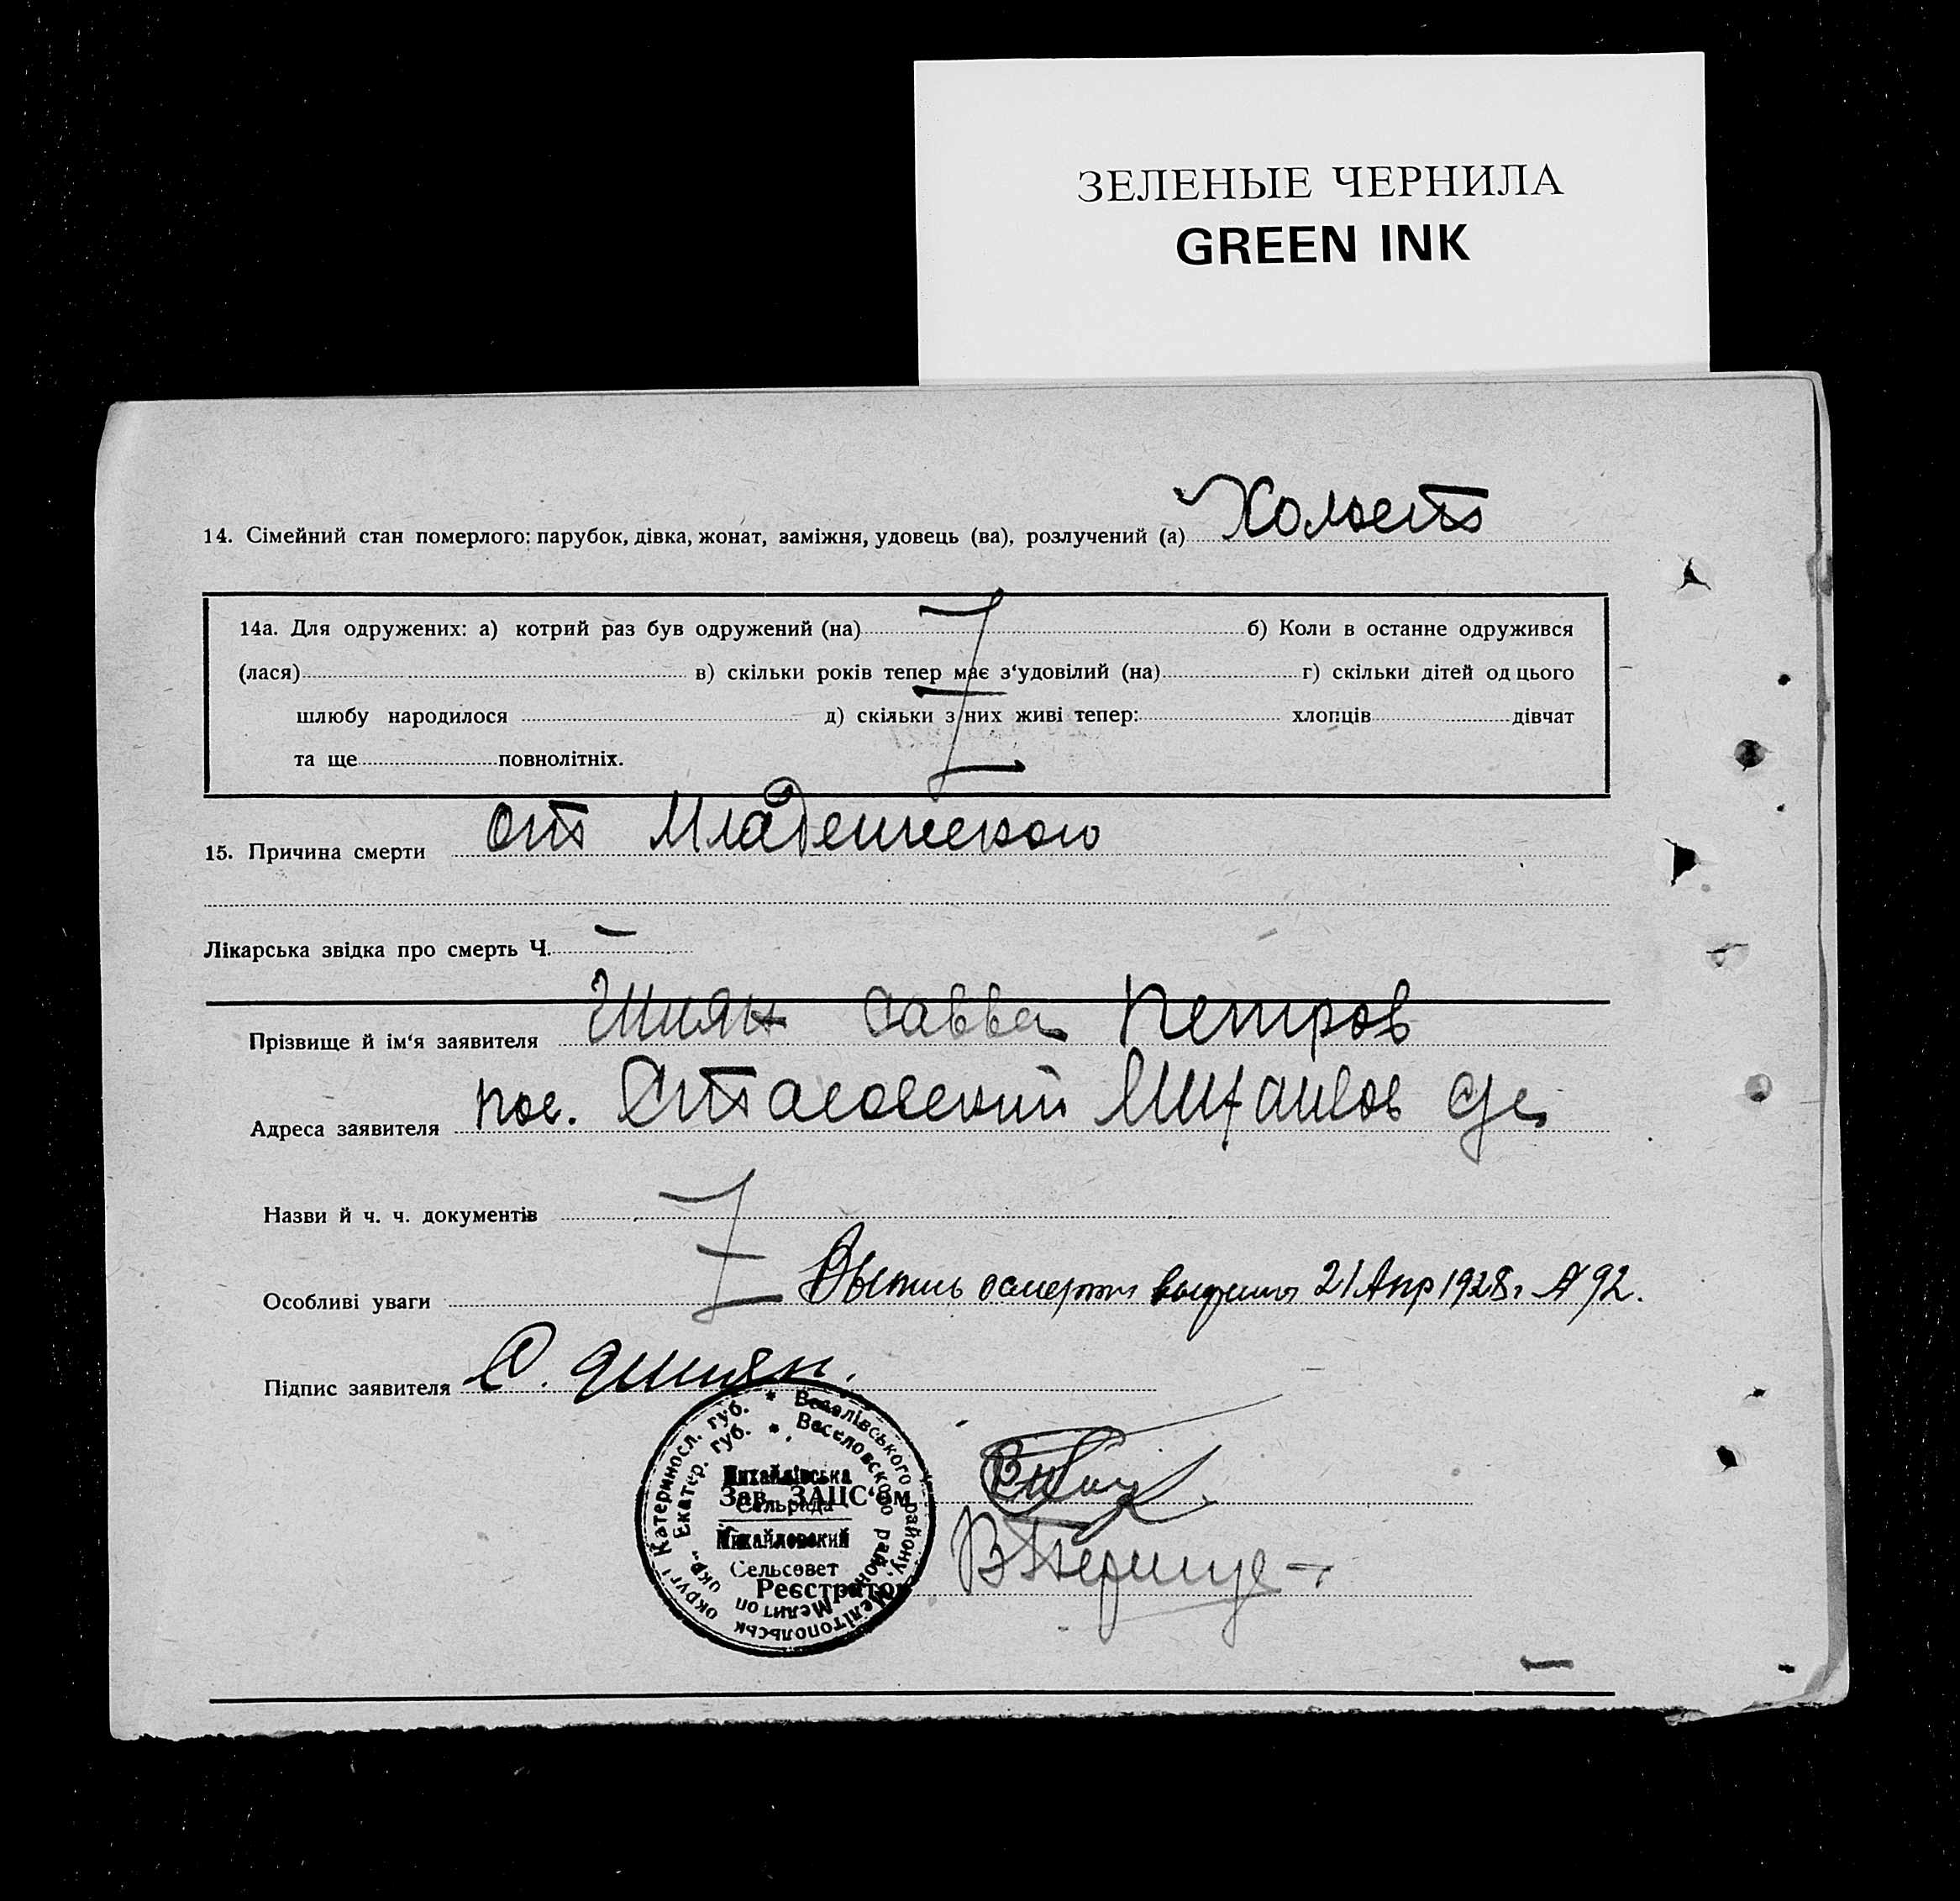 ЗЕЛЕНЫЕ ЧЕРНИЛА
GREEN INK
14. Сімейний стан померлого: парубок, дівка, жонат, заміжня, удовець (ва), розлучений (а) Холост
14а. Для одружених: а) котрий раз був одружений (на) б) Коли в останнє одружився
(лася) в) скільки років тепер має з‘удовілий (на) г) скільки дітей од цього
шлюбу народилося д) скільки з них живі тепер: хлопців дівчат
та ще повнолітніх.
15. Причина смерти от Младенческого
Лікарська звідка про смерть Ч. —
Прізвище й ім‘я заявителя Шиян Савва Петров
Адреса заявителя пос. Михайлов
Назви й ч. ч. документів
Особливі уваги Выпись о смерти выдана 21 Апр 1928 г № 92.
Підпис заявителя С. Шиян.
Катериносл. губ. * Веселівського району Мелітопольськ округ
Екатер. губ. * Веселовского района Мелитоп окр.
Михайлівська
Сельрада
Зав. ЗАЦС‘ом
Михайловский
Сельсовет
Реєстратор